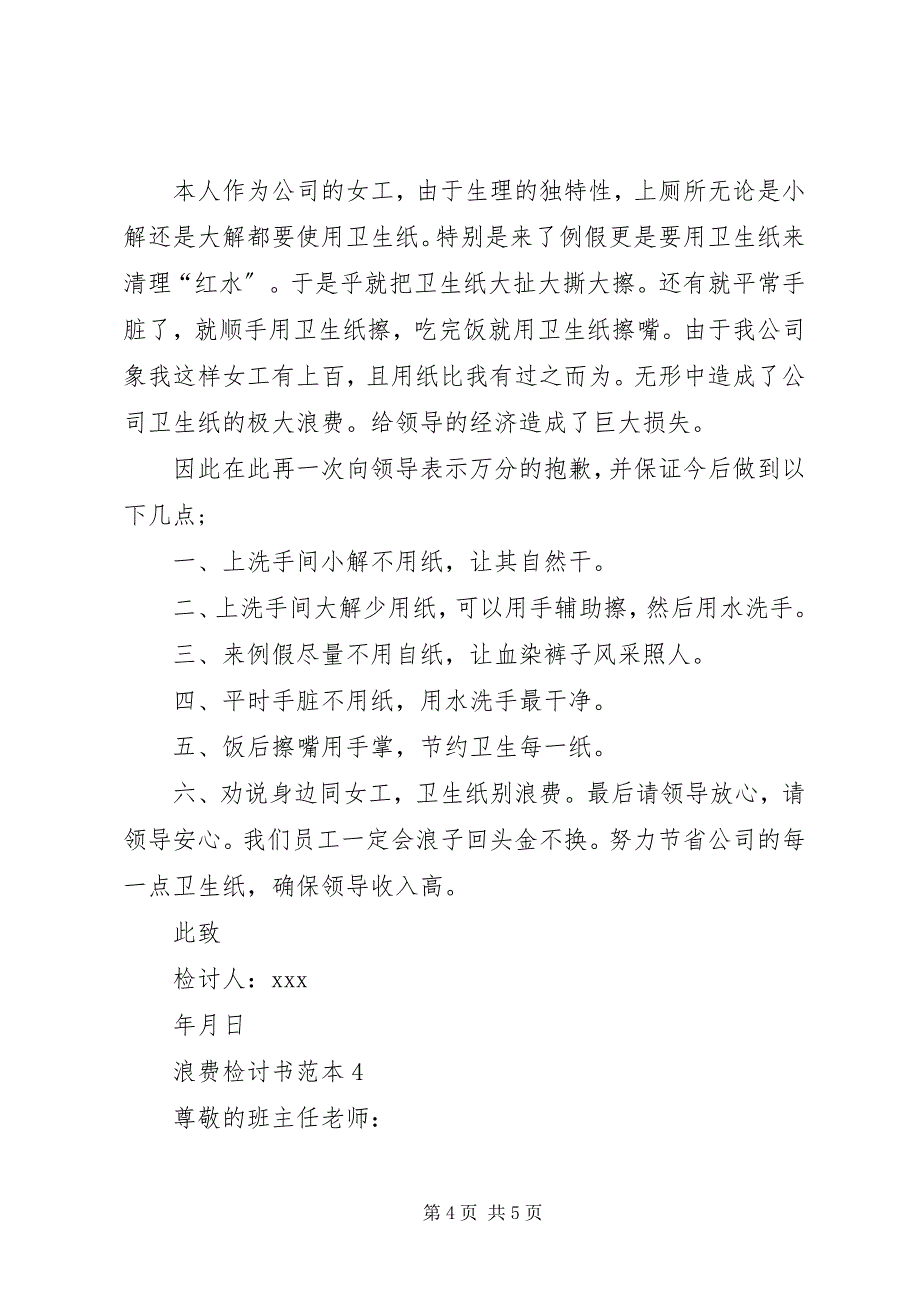 本人作为公司的女工，由于生理的独特性，上厕所无论是小
解还是大解都要使用卫生纸。特别是来了例假更是要用卫生纸来
清理“红水〞。于是乎就把卫生纸大扯大撕大擦。还有就平常手
脏了，就顺手用卫生纸擦，吃完饭就用卫生纸擦嘴。由于我公司
象我这样女工有上百，且用纸比我有过之而为。无形中造成了公
司卫生纸的极大浪费。给领导的经济造成了巨大损失。
因此在此再一次向领导表示万分的抱歉，并保证今后做到以
下几点；
一、上洗手间小解不用纸，让其自然干。
二、上洗手间大解少用纸，可以用手辅助擦，然后用水洗手。
三、来例假尽量不用自纸，让血染裤子风采照人。
四、平时手脏不用纸，用水洗手最干净。
五、饭后擦嘴用手掌，节约卫生每一纸。
六、劝说身边同女工，卫生纸别浪费。最后请领导放心，请
领导安心。我们员工一定会浪子回头金不换。努力节省公司的每
一点卫生纸，确保领导收入高。
此致
检讨人：xxx
年月日
浪费检讨书范本4
尊敬的班主任老师：
第4页 共5页